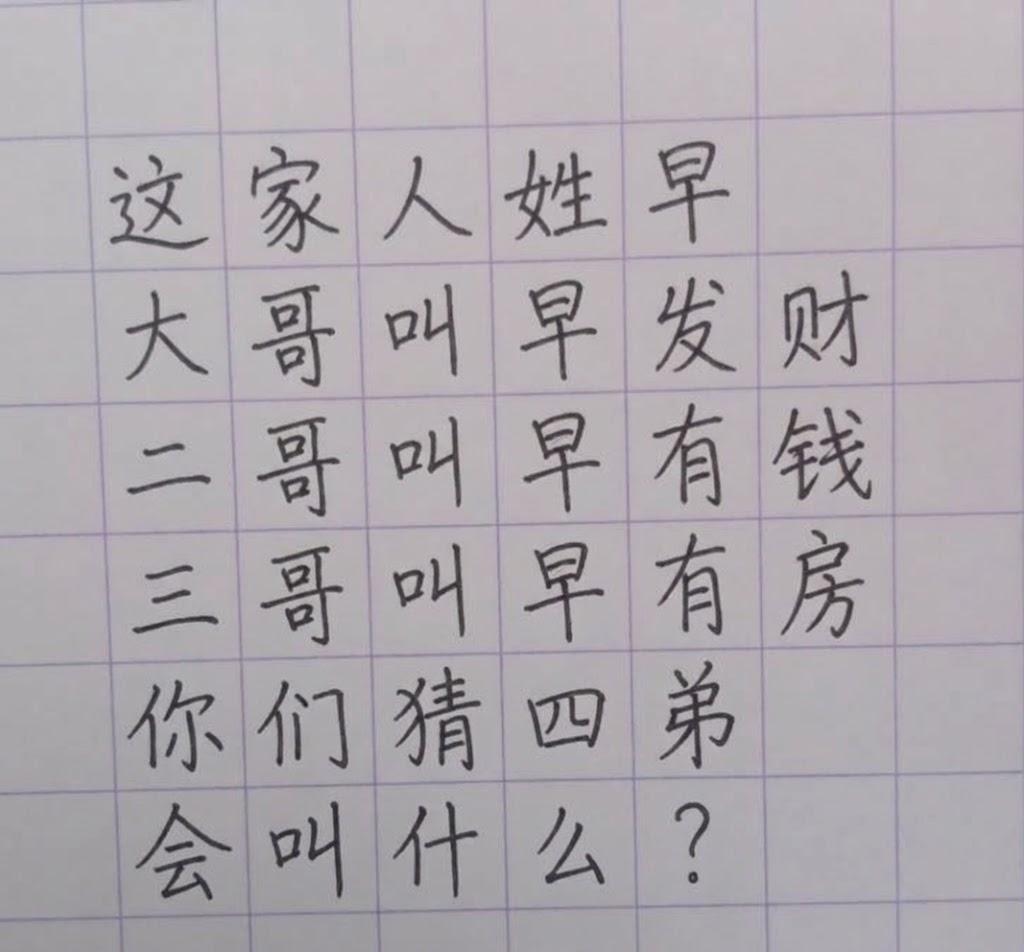 这家人姓早
大哥叫早发财
二哥叫早有钱
三哥叫早有房
你们猜四弟
会叫什么?